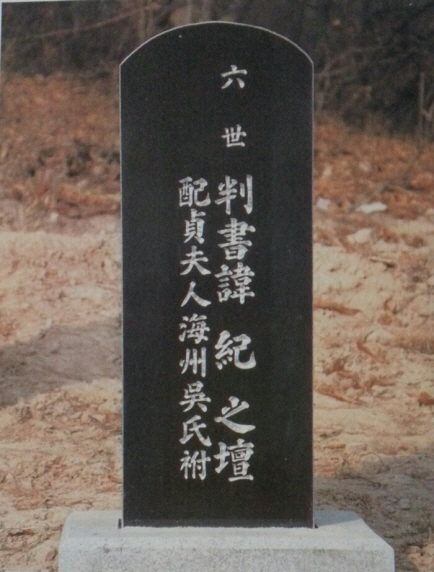 六世
判書諱紀之壇
配貞夫人海州吳氏祔